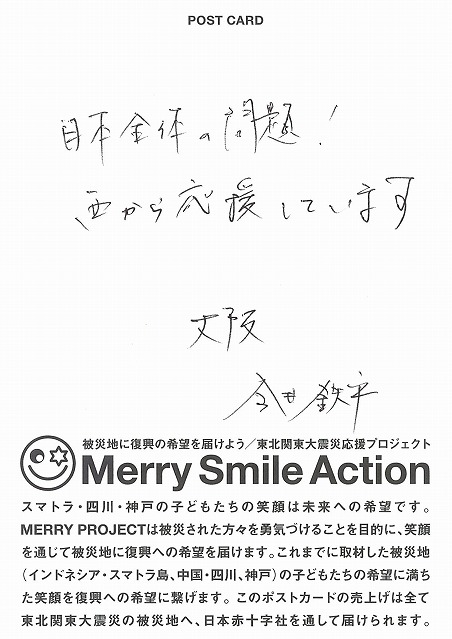 POST CARD
日本全体の問題!
西から応援しています
大阪
今井 鉄平
被災地に復興の希望を届けよう/東北関東大震災応援プロジェクト
Merry Smile Action
スマトラ・四川・神戸の子どもたちの笑顔は未来への希望です。
MERRY PROJECTは被災された方々を勇気づけることを目的に、笑顔
を通じて被災地に復興への希望を届けます。これまでに取材した被災地
(インドネシア・スマトラ島、中国・四川、神戸)の子どもたちの希望に満ち
た笑顔を復興への希望に繋げます。このポストカードの売上げは全て
東北関東大震災の被災地へ、日本赤十字社を通して届けられます。